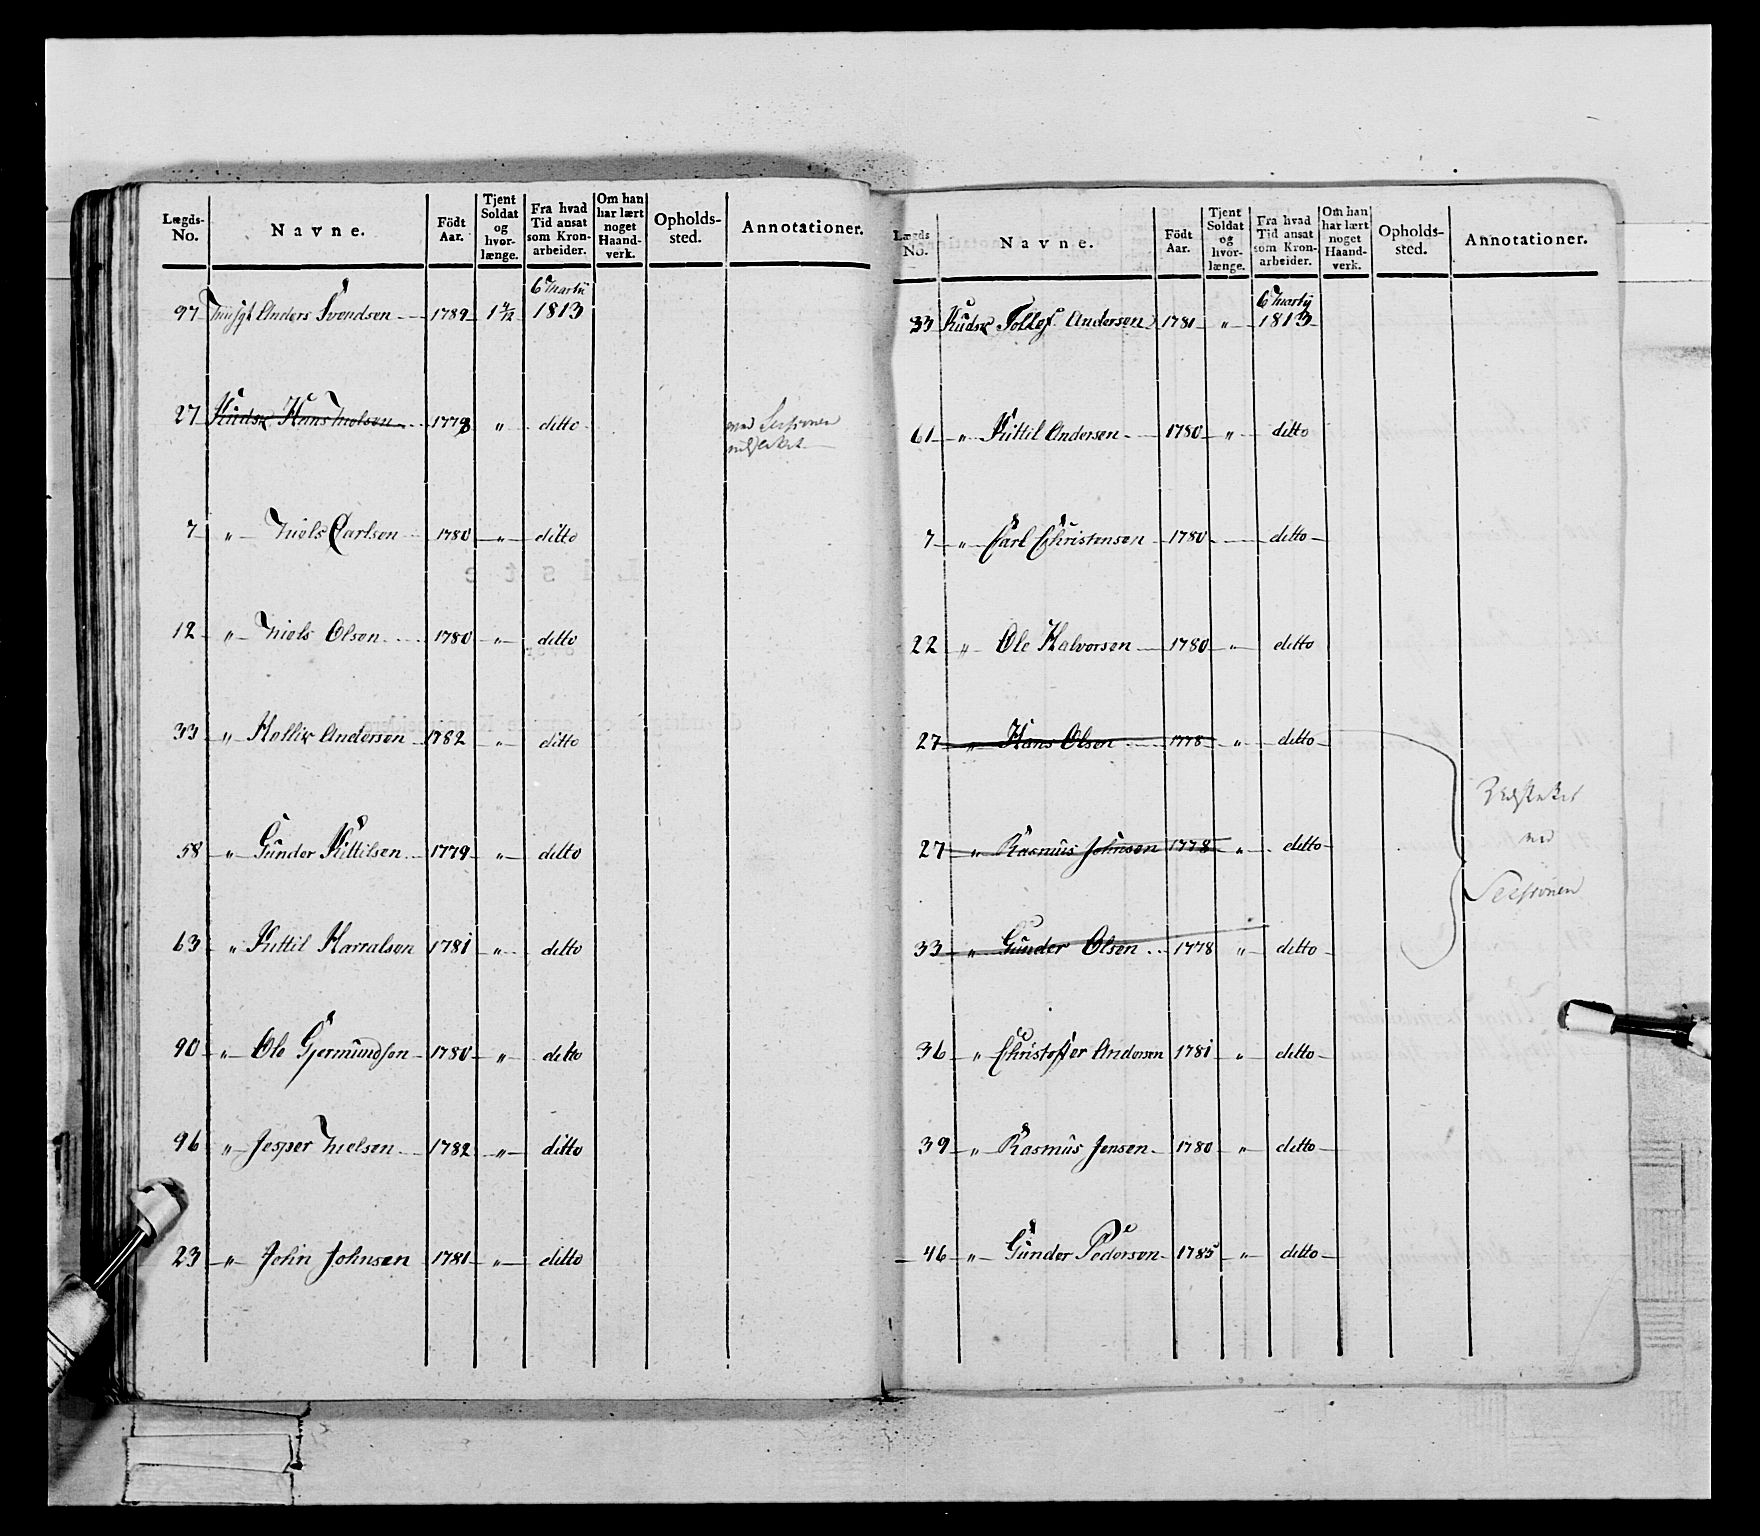 Lægds-No. Navne. Födt Aar. Tjent Soldat og hvor-længe. Fra hvad Tid ansat som Kron-arbeider. Om han har lært noget Haand-verk. Opholds-sted. Annotationer.
6 Martii
97 Anders Svendsen 1789 1 4/12 1813
27 Kudsk Hans Nielsen 1778 " ditto ved Sessionen
udslettet
7 " Niels Carlsen 1780 " ditto
12 " Niels Olsen 1780 " ditto
33 " Andersen 1782 " ditto
58 " Gunder Kittilsen 1779 " ditto
63 " Kittil Harralsen 1781 " ditto
90 " Ole Gjermundsen 1780 " ditto
96 " Jesper Nielsen 1782 " ditto
23 " John Johnsen 1781 " ditto
Lægds No. Navne. Födt Aar. Tjent Soldat og hvor-længe. Fra hvad Tid ansat som Kron-arbeider. Om han har lært noget Haand-verk. Opholds-sted. Annotationer.
6 Martij
33 Kudsk Tollef Andersen 1781 " 1813
61 " Kittil Andersen 1780 " ditto
7 " Carl Christensen 1780 ditto
22 " Ole Halvorsen 1780 " ditto
27 " Hans Olsen 1778 " ditto
Udslettet
27 " Rasmus Johnsen 1778 " ditto
ved
Sessionen
33 " Gunder Olsen 1778 " ditto
36 " Christoffer Andersen 1781 " ditto
39 " Rasmus Jensen 1780 " ditto
46 " Gunder Pedersen 1785 " ditto